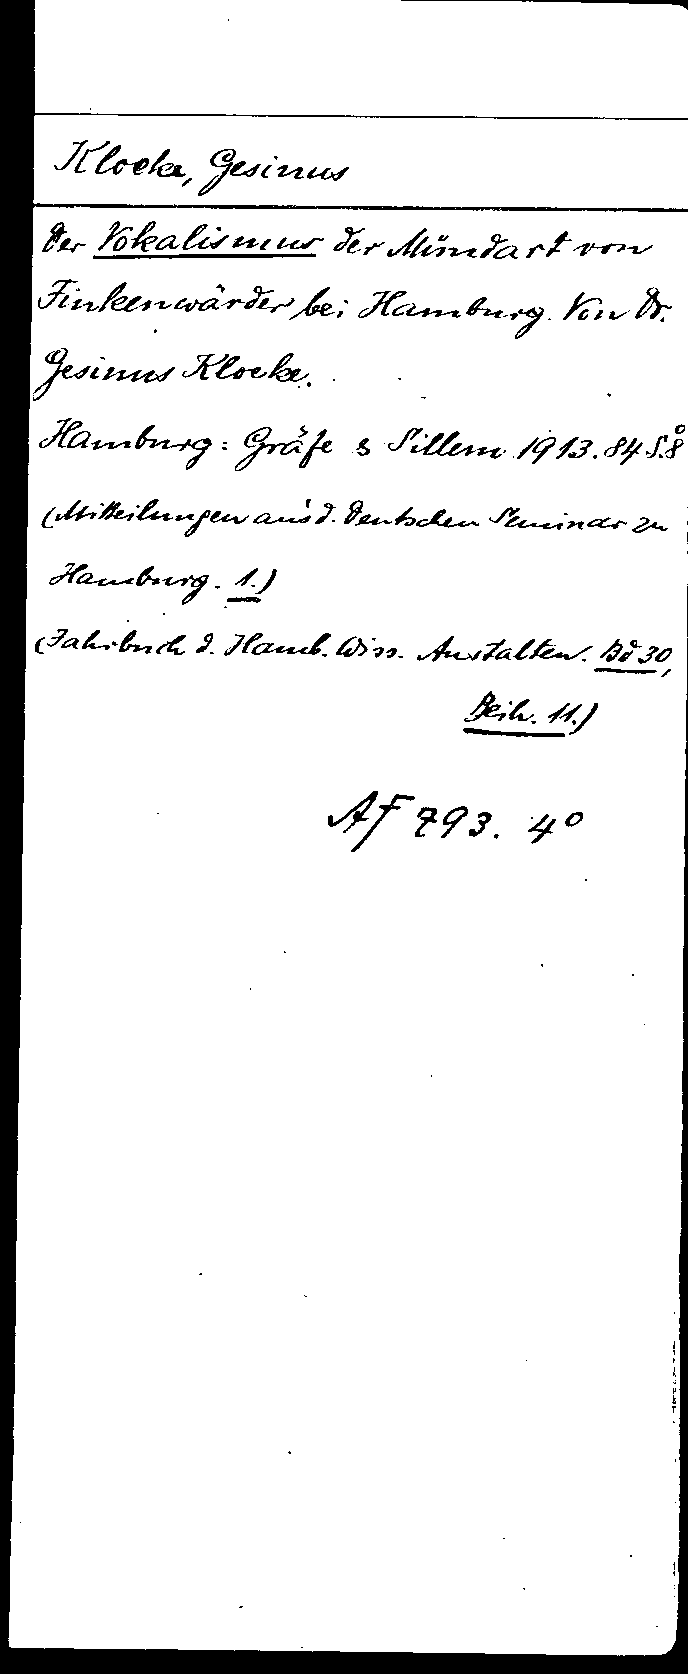 Klocke, Gesinus
Der Vokalismus der Mundart von
Finkenwärder bei Hamburg. Von Dr.
Gesinus Klocke.
Hamburg: Gräfe & Sillem 1913. 84 S. 8°
(Mitteilungen aus d. Deutschen Seminar zu
Hamburg. 1.)
(Jahrbuch d. Hamb. Wiss. Anstalten. Bd 30,
Beih. 11.)
AF 793. 4°